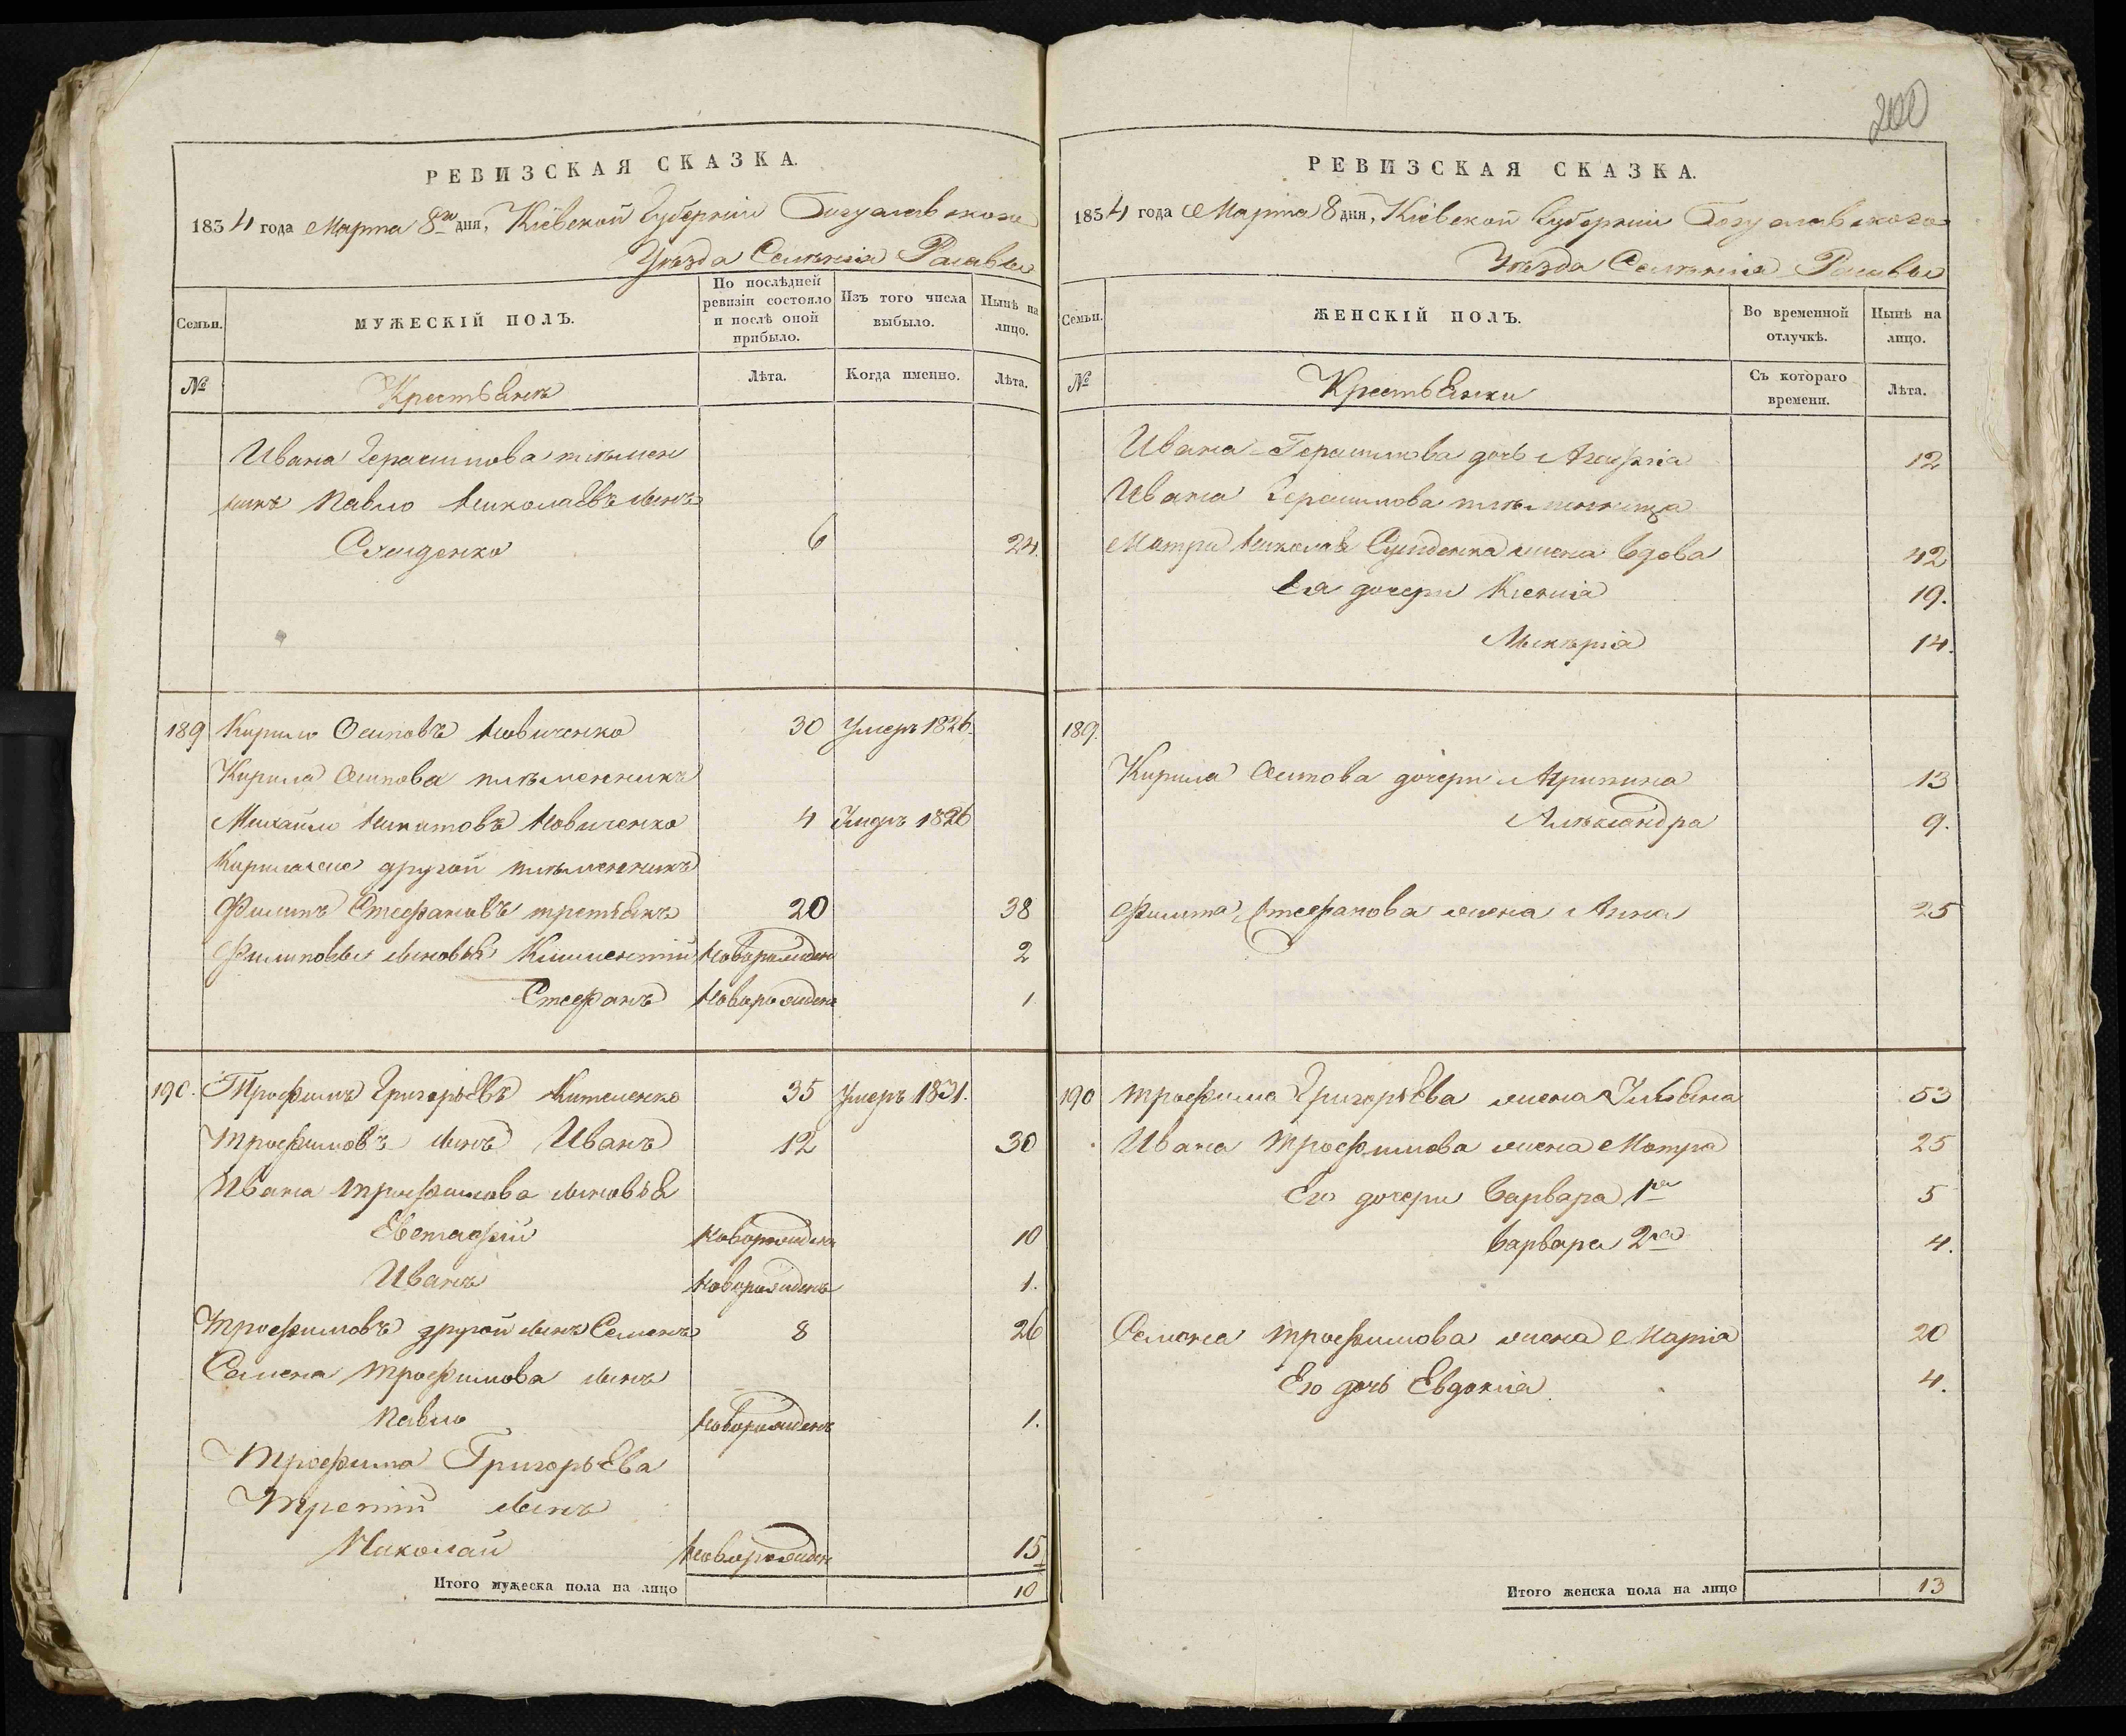 200
РЕВИЗСКАЯ СКАЗКА.
1834 года Марта 8го дня, Кіевской Губерніи Богуславскаго
Уѣзда Селенія Расавы
Семьи.
МУЖЕСКІЙ ПОЛЪ.
По послѣдней ревизіи состояло и послѣ оной прибыло.
Изъ того числа выбыло.
Нынѣ на лицо.
№
Крестьянъ
Лѣта.
Когда именно.
Лѣта.
Ивана Герасимова племен
никъ Павло Николаевъ сынъ
6 24.
189 Кирило Осиповъ Новиченко 30 Умеръ 1826.
Кирила Осипова племенникъ
Михайло Новиченко 4 Умеръ 1826
другой племенникъ
Филипъ Стефановъ 20 38
Филиповы сыновья Климентій Новорожден 2
Стефанъ Новорожденъ 1
190. Трофимъ Григорьевъ 35 Умеръ 1831.
Трофимовъ сынъ Иванъ 12 30
Ивана Трофимова сыновья
Евстафій Новорожденъ 10
Иванъ Новорожденъ 1.
Трофимовъ другой сынъ Семенъ 8 26
Семена Трофимова сынъ
Павло Новорожденъ 1.
Трофима Григорьева
Третій сынъ
Николай Новорожден 15
Итого мужеска пола на лицо 10
РЕВИЗСКАЯ СКАЗКА.
1834 года Марта 8 дня, Кіевской Губерніи Богуславскаго
Уѣзда Селенія Расавы
Семьи.
ЖЕНСКІЙ ПОЛЪ.
Во временной отлучкѣ.
Нынѣ на лицо.
№
Крестьянки
Съ котораго времени.
Лѣта.
Ивана Герасимова дочь Агафія 12
Ивана Герасимова племенница
Матра Николая жена вдова 42
Ея дочери Ксенія 19.
14.
189.
Кирила Осипова дочери 13
Александра 9.
Филипа Стефанова жена Анна 25
190 Трофима Григорьева жена Ульяна 53
Ивана Трофимова жена Матра 25
Его дочери Варвара 1я 5
Варвара 2я 4.
Семена Трофимова жена Марія 20
Его дочь Евдокія 4.
Итого женска пола на лицо 13